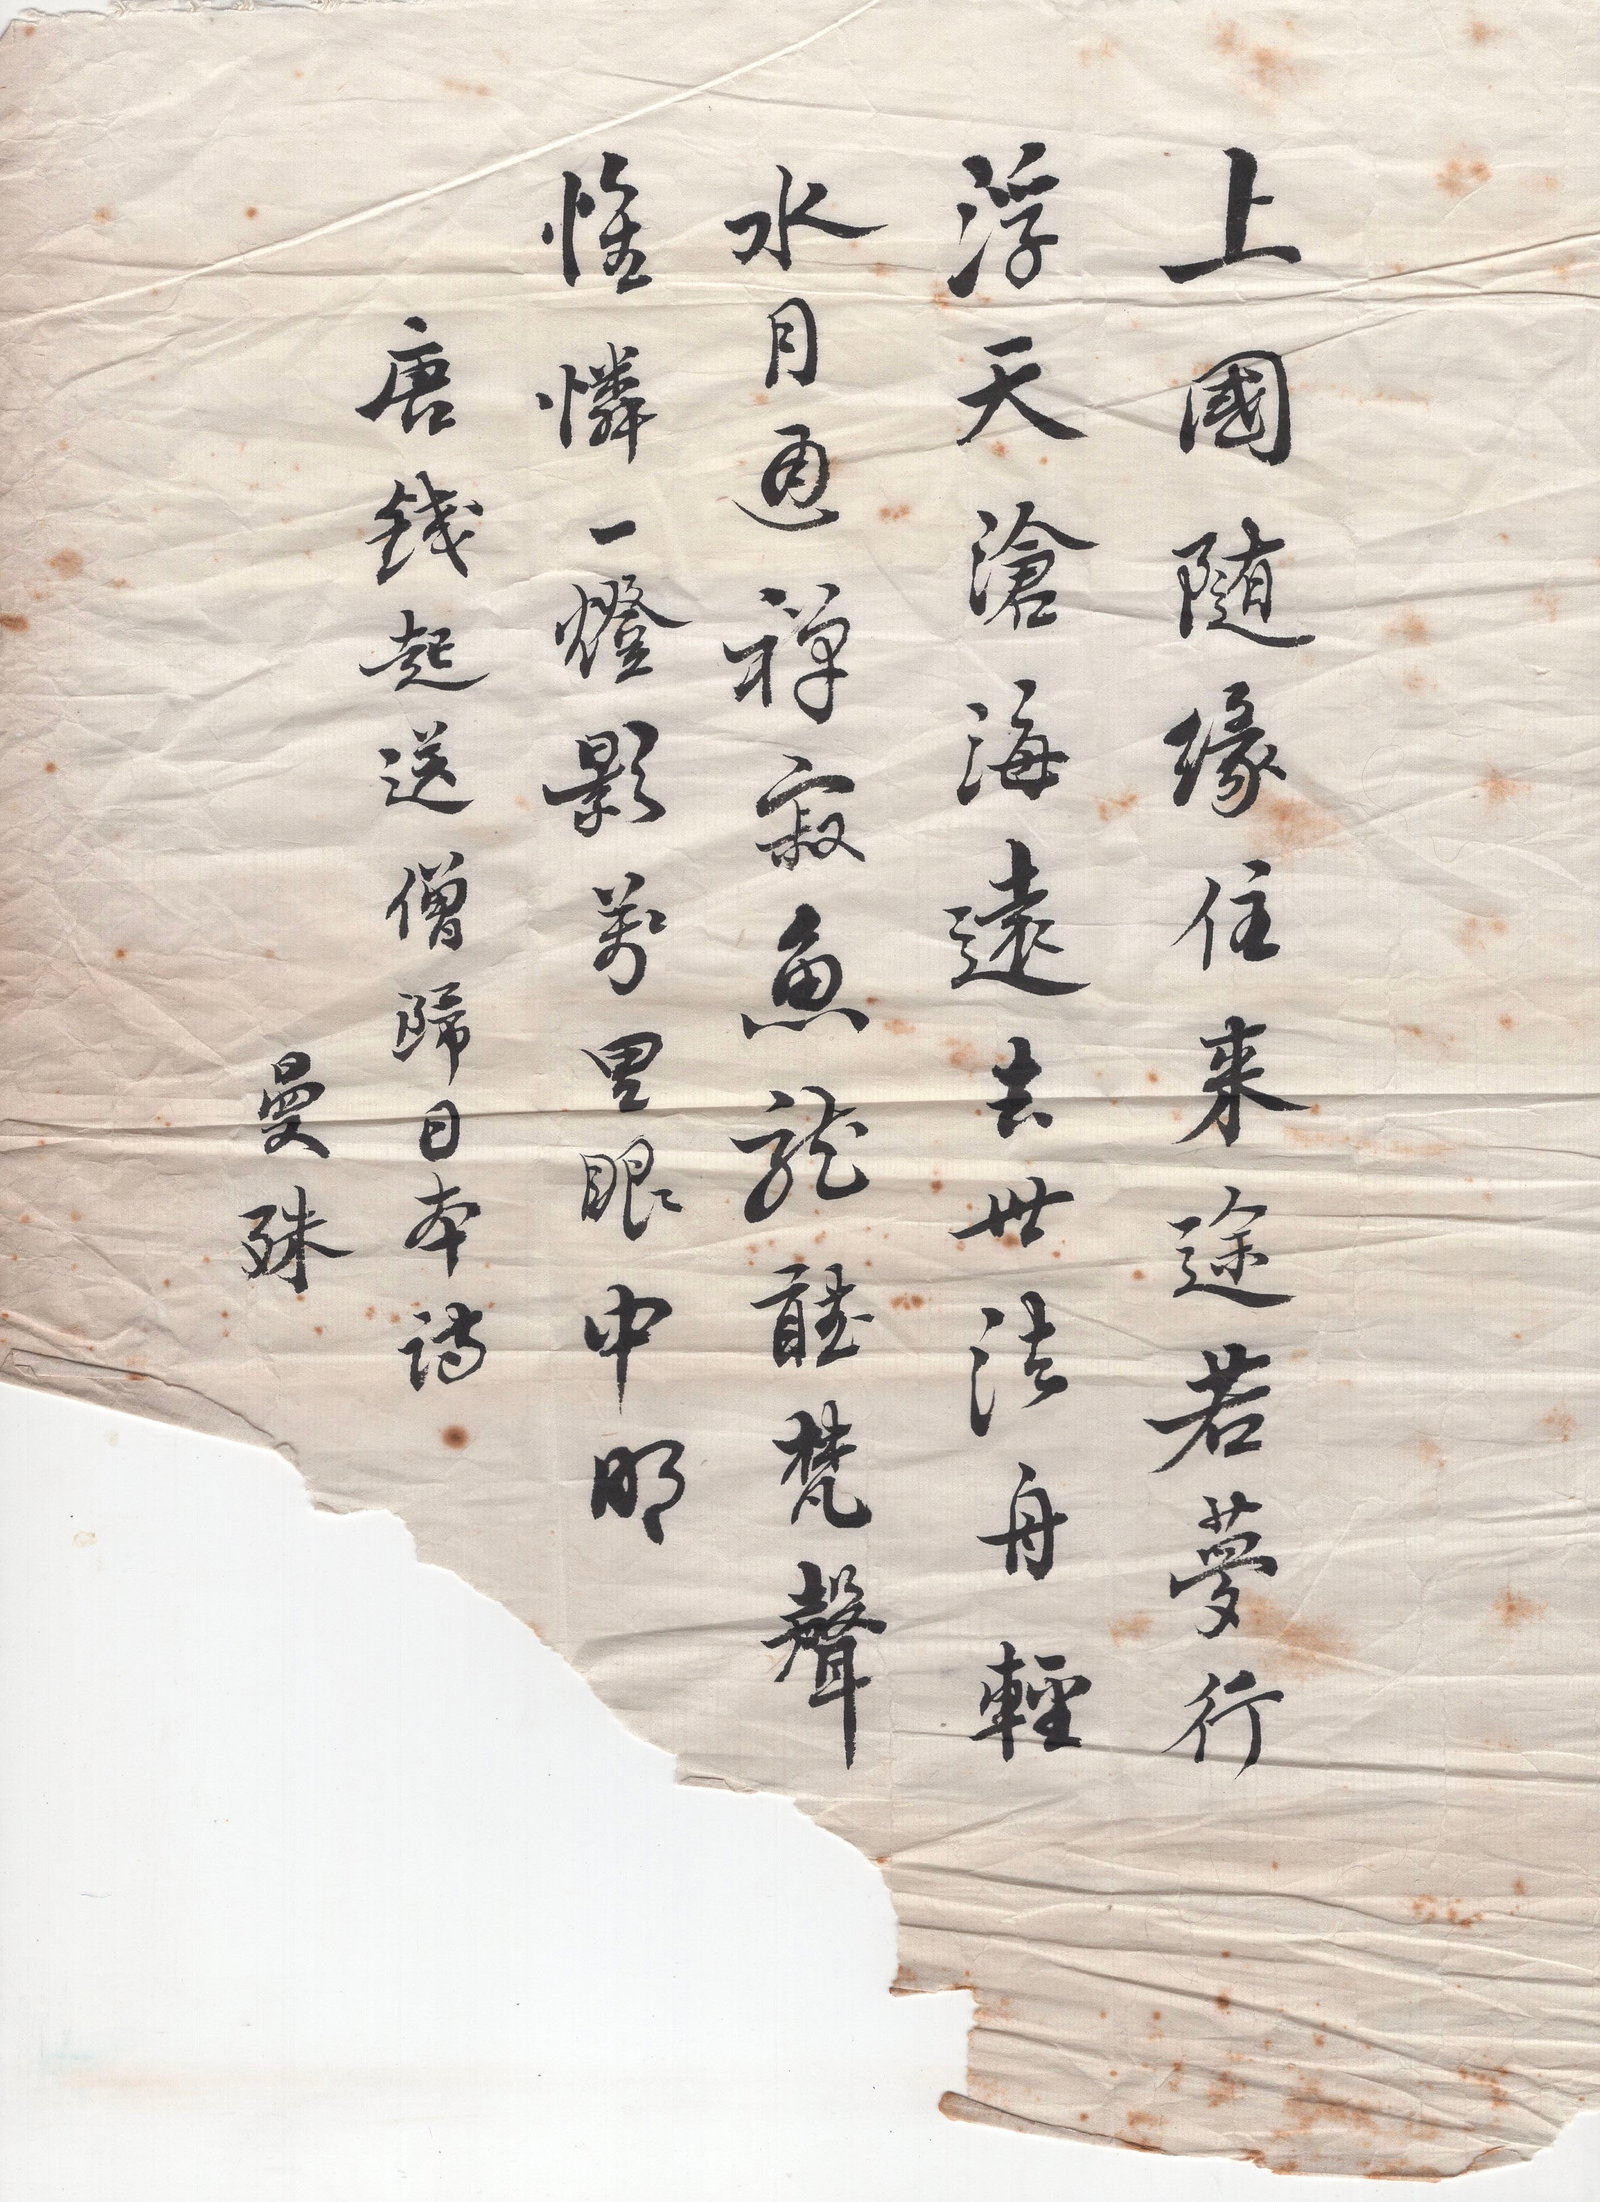 上國随緣住来途若夢行
浮天滄海遠去世法舟輕
水月通禅寂魚龍聽梵聲
惟憐一燈影萬里眼中明
唐錢起送僧歸日本詩
曼殊